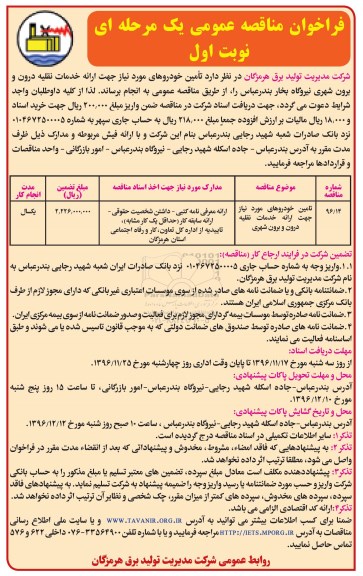 فراخوان مناقصه عمومی یک مرحله ای
نوبت اول
شرکت مدیریت تولید برق هرمزگان در نظر دارد تأمین خودروهای مورد نیاز جهت ارائه خدمات نقلیه درون و
برون شهری نیروگاه بخار بندرعباس را، از طریق مناقصه عمومی به انجام برساند. لذا از کلیه داوطلبان واجد
شرایط دعوت می گردد، جهت دریافت اسناد شرکت در مناقصه ضمن واریز مبلغ ۲۰۰.۰۰۰ ریال جهت خرید اسناد
و ۱۸.۰۰۰ ریال مالیات بر ارزش افزوده جمعا مبلغ ۲۱۸.۰۰۰ ریال به حساب جاری سپهر به شماره ۰۱۰۴۶۷۲۵۰۰۰۵
نزد بانک صادرات شعبه شهید رجایی بندرعباس بنام این شرکت و با ارائه فیش مربوطه و مدارک ذیل ظرف
مدت مقرر به آدرس بندرعباس - جاده اسکله شهید رجایی - نیروگاه بندرعباس - امور بازرگانی - واحد مناقصات
و قراردادها مراجعه فرمایید.
شماره مناقصه
موضوع مناقصه
مدارک مورد نیاز جهت اخذ اسناد مناقصه
مبلغ تضمین (ریال)
مدت انجام کار
۹۶/۱۲
تامین خودروهای مورد نیاز جهت ارائه خدمات نقلیه درون و برون شهری
ارائه معرفی نامه کتبی - داشتن شخصیت حقوقی - ارائه سابقه کار (حداقل یک کار مشابه)، تاییدیه از اداره کل تعاون، کار و رفاه اجتماعی استان هرمزگان
۲,۲۲۶,۰۰۰,۰۰۰
یکسال
تضمین شرکت در فرایند ارجاع کار (مناقصه):
۱.۱.واریز وجه به شماره حساب جاری ۰۱۰۴۶۷۲۵۰۰۰۵ نزد بانک صادرات ایران شعبه شهید رجایی بندرعباس به
نام شرکت مدیریت تولید برق هرمزگان.
۲.ضمانتنامه بانکی و یا ضمانت نامه های صادر شده از سوی موسسات اعتباری غیربانکی که دارای مجوز لازم از طرف
بانک مرکزی جمهوری اسلامی ایران هستند.
۳.ضمانت نامه صادره توسط موسسات بیمه گر دارای مجوز لازم برای فعالیت و صدور ضمانت نامه از سوی بیمه مرکزی ایران.
۴.ضمانت نامه های صادره توسط صندوق های ضمانت دولتی که به موجب قانون تاسیس شده یا می شوند و طبق
اساسنامه فعالیت می نمایند.
مهلت دریافت اسناد:
از روز سه شنبه مورخ ۱۳۹۶/۱۱/۱۷ تا پایان وقت اداری روز چهارشنبه مورخ ۱۳۹۶/۱۱/۲۵.
محل و مهلت تحویل پاکات پیشنهادی:
آدرس بندرعباس-جاده اسکله شهید رجایی-نیروگاه بندرعباس-امور بازرگانی، تا ساعت ۱۵ روز پنج شنبه
مورخ ۱۳۹۶/۱۲/۱۰.
محل و تاریخ گشایش پاکات پیشنهادی:
آدرس بندرعباس-جاده اسکله شهید رجایی-نیروگاه بندرعباس ، ساعت ۱۰ صبح روز شنبه مورخ ۱۳۹۶/۱۲/۱۲
تذکر۱: سایر اطلاعات تکمیلی در اسناد مناقصه درج گردیده است.
تذکر۲: به پیشنهادهایی که فاقد امضاء، مشروط، مخدوش و پیشنهاداتی که بعد از انقضاء مدت مقرر در فراخوان
واصل می شود، مطلقا ترتیب اثر داده نخواهد شد.
تذکر۳: پیشنهاددهنده مکلف است معادل مبلغ سپرده، تضمین های معتبر تسلیم یا مبلغ مذکور را به حساب بانکی
شرکت واریز و حسب مورد ضمانتنامه یا رسید واریز وجه را ضمیمه پیشنهاد به شرکت تسلیم نماید. به پیشنهادهای فاقد
سپرده، سپرده های مخدوش، سپرده های کمتر از میزان مقرر، چک شخصی و نظایر آن ترتیب اثر داده نخواهد شد.
تذکر۴: ارائه کد اقتصادی الزامی می باشد.
ضمنا برای کسب اطلاعات بیشتر می توانید به آدرس WWW.TAVANIR.ORG.IR و یا سایت ملی اطلاع رسانی
مناقصات به آدرس HTTP://IETS.MPORG.IR مراجعه فرمایید و یا با شماره تلفن ۳۳۵۶۴۹۰۰-۰۷۶ داخلی ۶۲۲ و ۵۷۶
تماس حاصل نمایید.
روابط عمومی شرکت مدیریت تولید برق هرمزگان